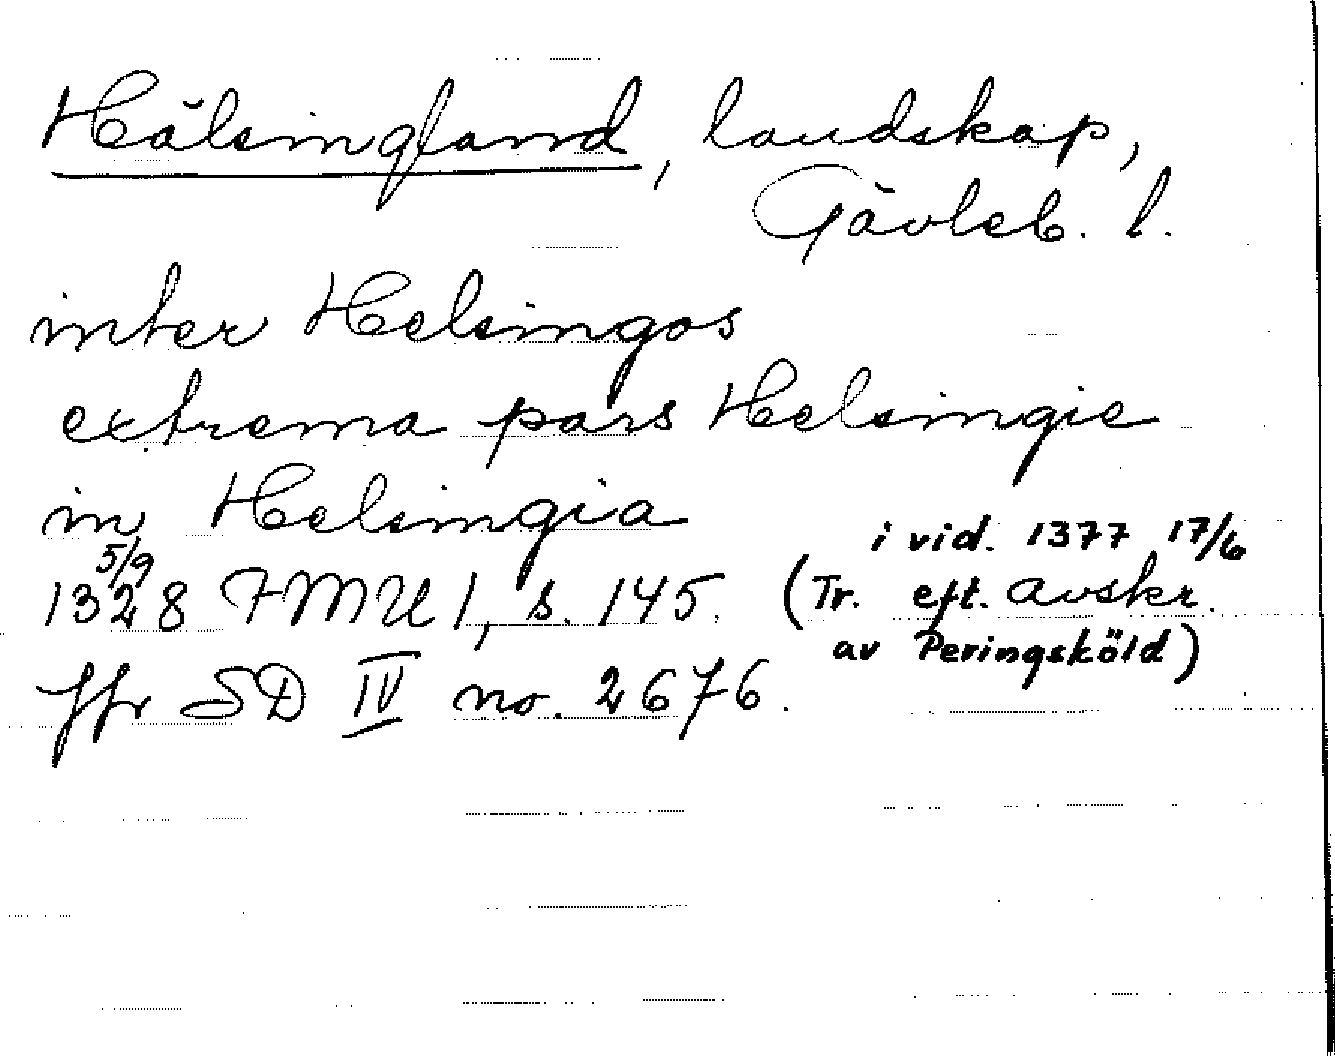 Hälsingland, landskap,
Gävleb. l.
inter Helsingos
extrema pars Helsingie
in Helsingia
5/9
1328 FMU 1, s. 145. (Tr. eft. avskr. i vid. 1377 17/6
av Peringsköld)
Jfr SD IV no. 2676.